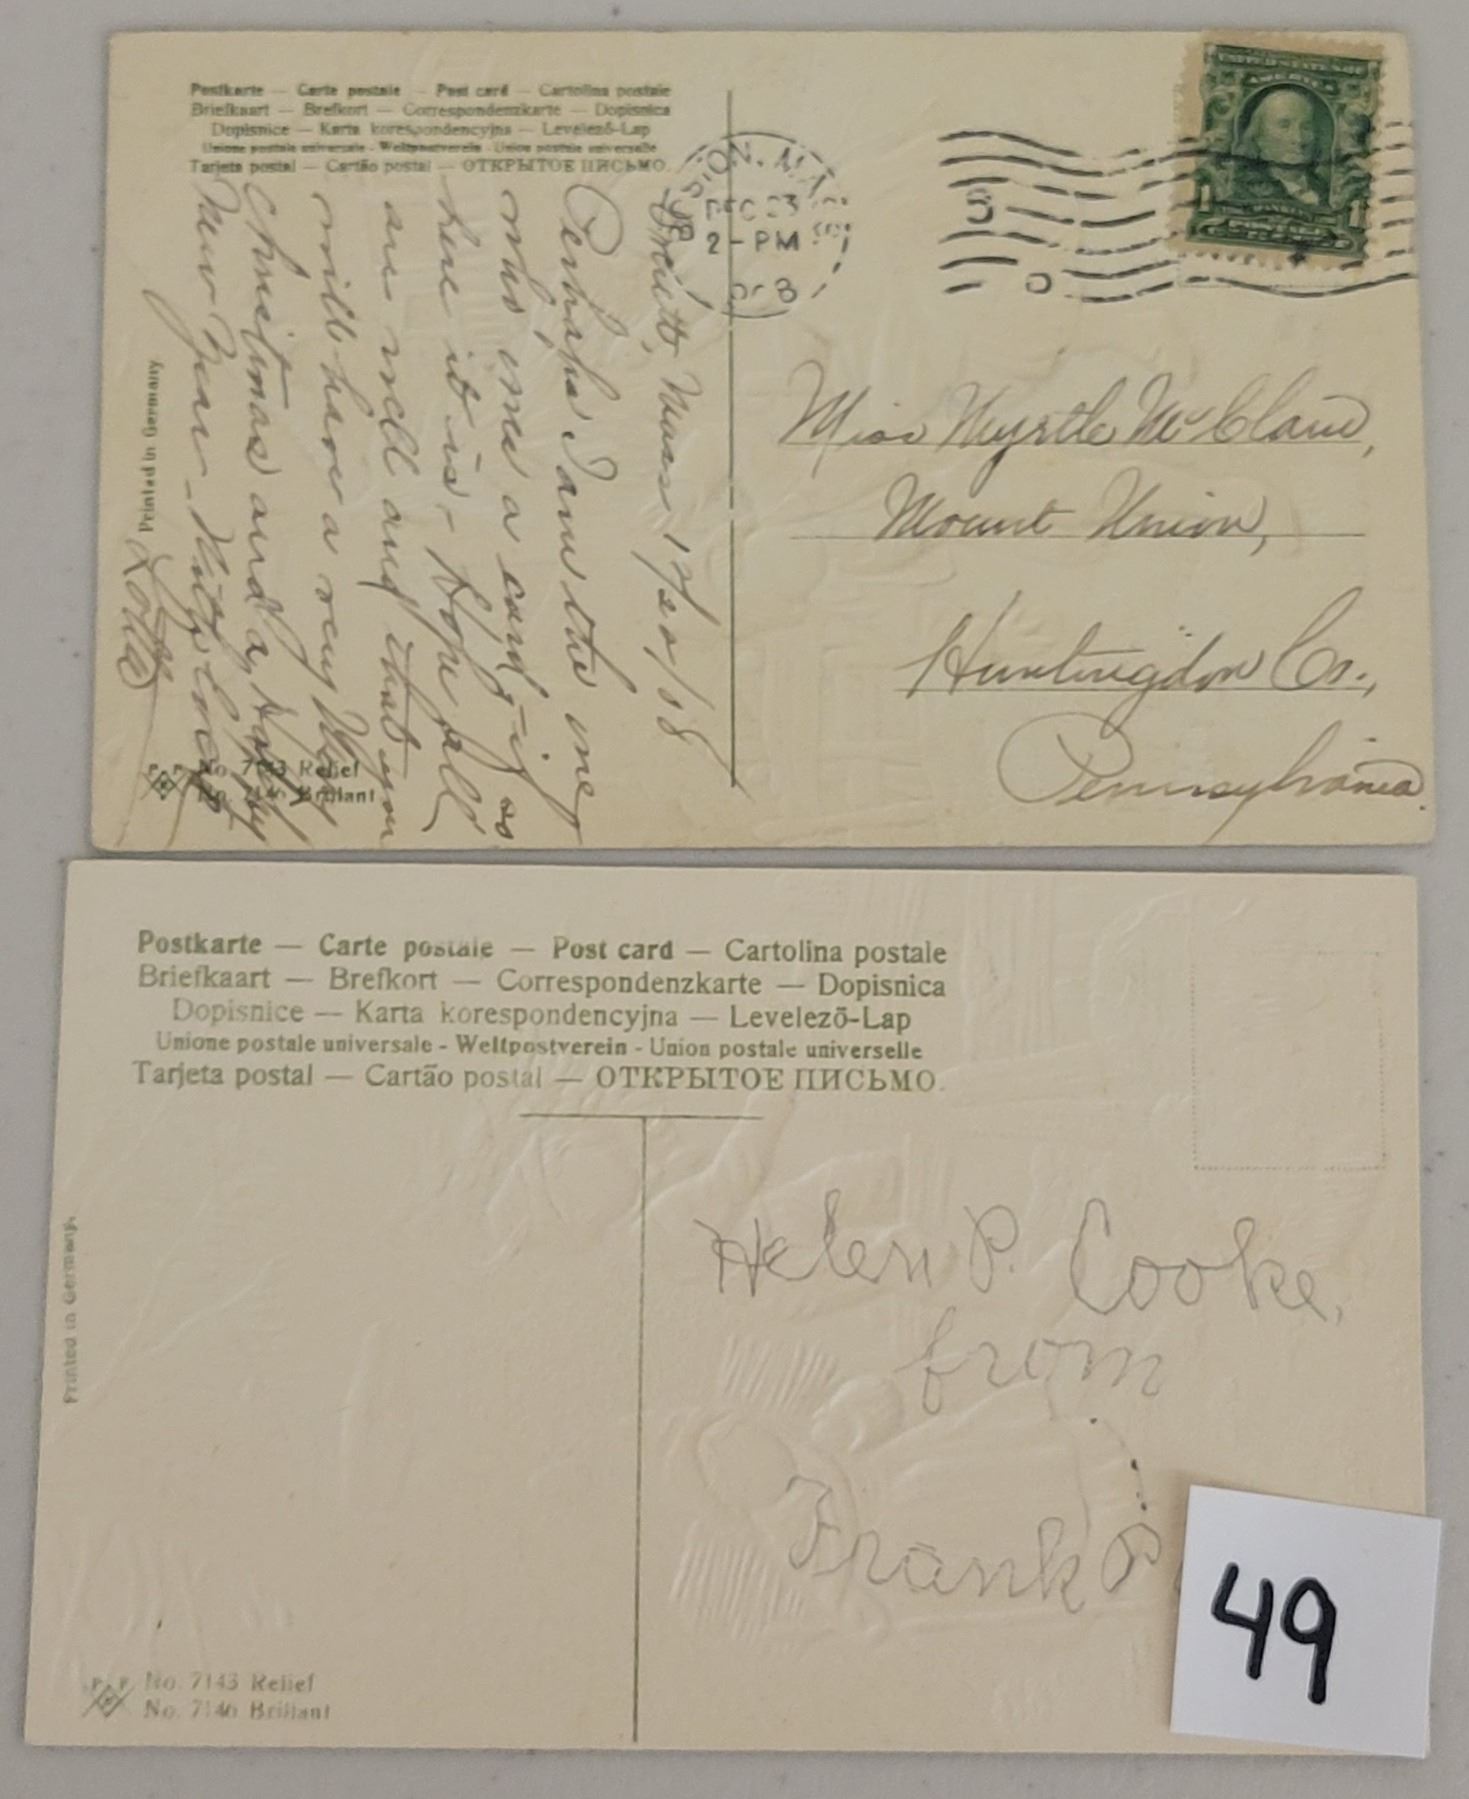 Postkarte — Carte postale — Post card — Cartolina postale
Briefkaart — Brefkort — Correspondenzkarte — Dopisnica
Dopisnice — Karta korespondencyjna — Levelező-Lap
Unione postale universale - Weltpostverein - Union postale universelle
Tarjeta postal — Cartão postal — ОТКРЫТОЕ ПИСЬМО.
DEC 23
2 - PM
UNITED STATES OF
AMERICA
1 1
Mass 12/22/08
Perhaps I am the one
who owes a card - if so
here it is - Hope all
are well and that you
will have a very Merry
Christmas and a Happy
New Year - With love
Lottie
Printed in Germany
Miss Myrtle McClain,
Mount Union,
Huntingdon Co.,
Pennsylvania.
P. P. No. 7143 Relief
No. 7146 Brillant
Postkarte — Carte postale — Post card — Cartolina postale
Briefkaart — Brefkort — Correspondenzkarte — Dopisnica
Dopisnice — Karta korespondencyjna — Levelező-Lap
Unione postale universale - Weltpostverein - Union postale universelle
Tarjeta postal — Cartão postal — ОТКРЫТОЕ ПИСЬМО.
Printed in Germany.
Helen P. Cooke,
from
Frank P
P. P. No. 7143 Relief
No. 7146 Brillant
49